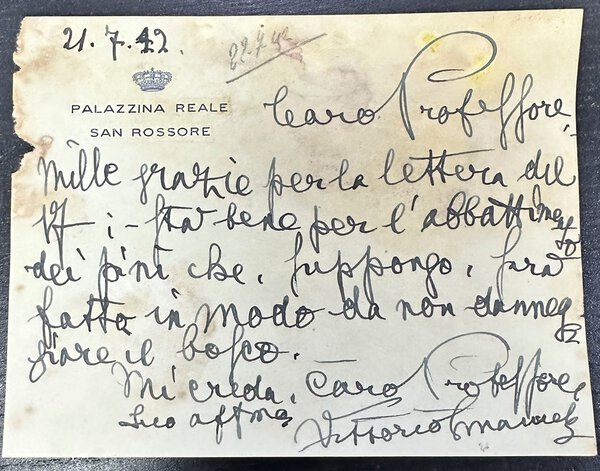 21.7.42.
22.7.42
PALAZZINA REALE
SAN ROSSORE
Caro Professore,
Mille grazie per la lettera del
17; - sta bene per l'abbattimento
dei pini che, suppongo, sarà
fatto in modo da non danneg
giare il bosco.
Mi creda, Caro Professore,
Suo affmo
Vittorio Emanuele